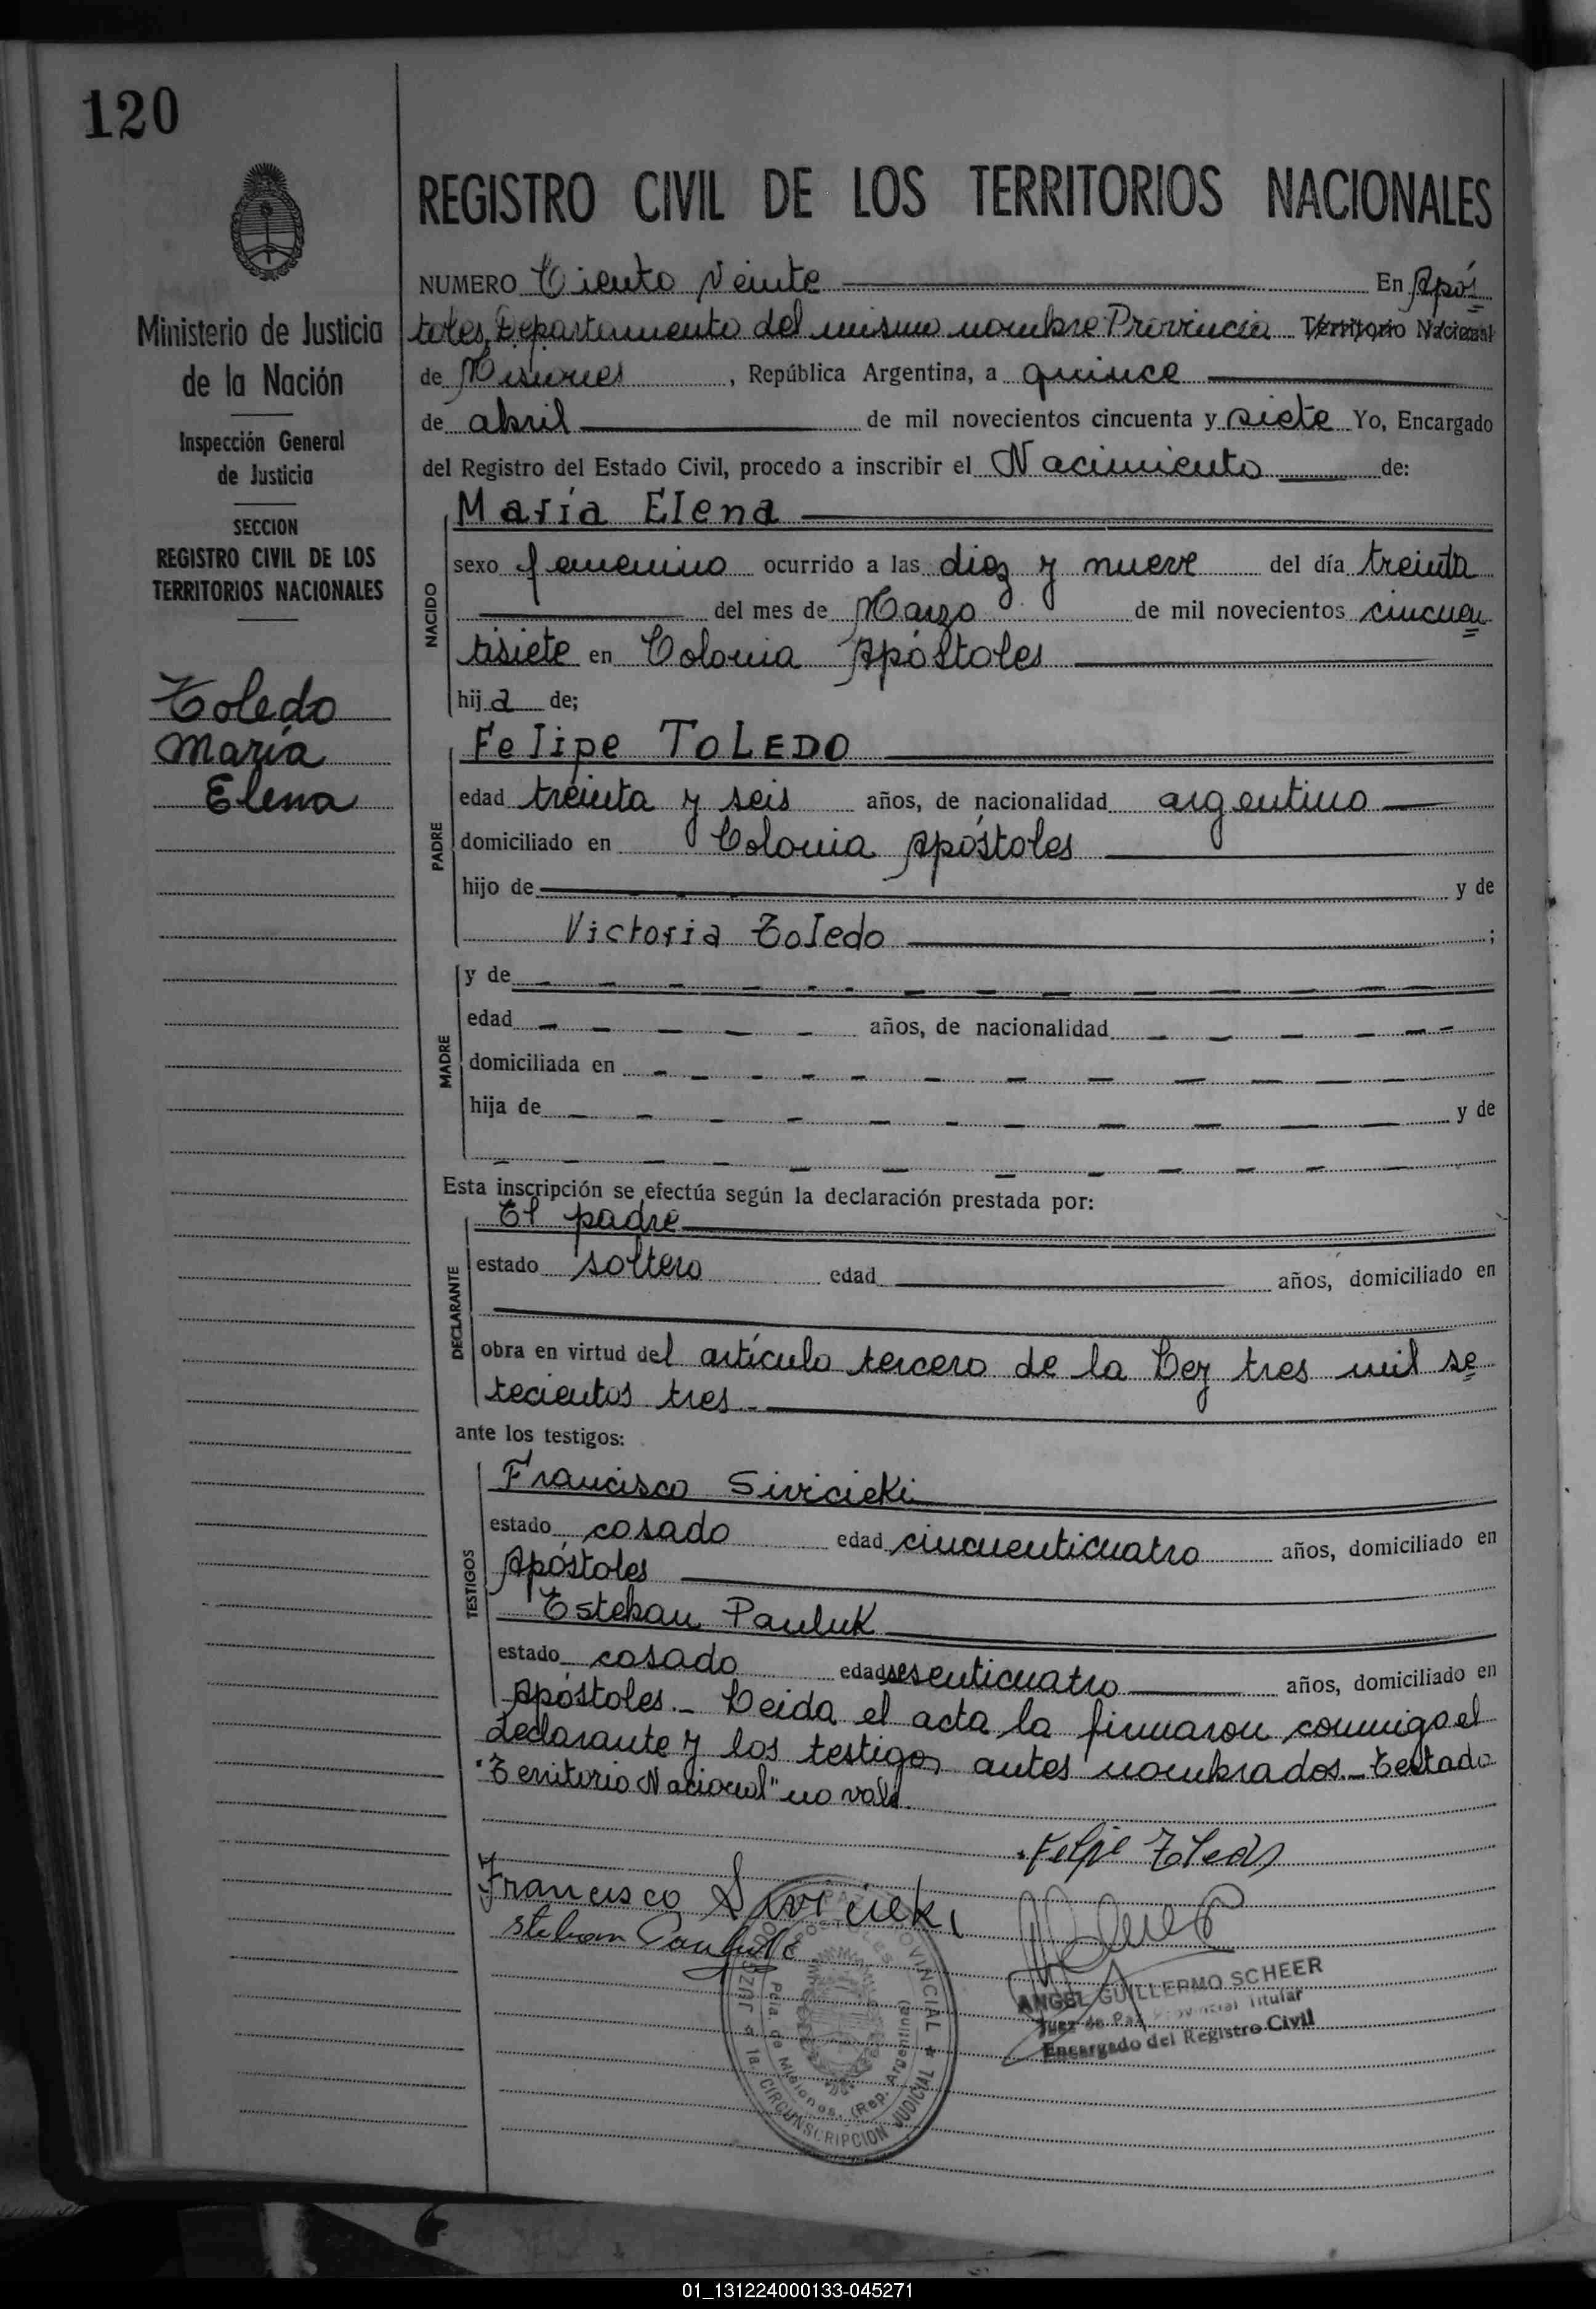 120
REGISTRO CIVIL DE LOS TERRITORIOS NACIONALES
Ministerio de Justicia
de la Nación
Inspección General
de Justicia
SECCION
REGISTRO CIVIL DE LOS
TERRITORIOS NACIONALES
Toledo
María
Elena
NUMERO Ciento Veinte En Após
toles, Departamento del mismo nombre Provincia Territorio Nacional
de Misiones, República Argentina, a quince
de abril de mil novecientos cincuenta y siete Yo, Encargado
del Registro del Estado Civil, procedo a inscribir el Nacimiento de:
NACIDO
María Elena
sexo femenino ocurrido a las diez y nueve del día treinta
del mes de Marzo de mil novecientos cincuen
tisiete en Colonia Apóstoles
hija de;
PADRE
Felipe TOLEDO
edad treinta y seis años, de nacionalidad argentino
domiciliado en Colonia Apóstoles
hijo de y de
Victoria Toledo ;
MADRE
y de
edad años, de nacionalidad
domiciliada en
hija de y de
Esta inscripción se efectúa según la declaración prestada por:
DECLARANTE
El padre
estado soltero edad años, domiciliado en
obra en virtud del artículo tercero de la Ley tres mil se
tecientos tres.-
ante los testigos:
TESTIGOS
Francisco Sivicieki
estado casado edad cincuenticuatro años, domiciliado en
Apóstoles
Esteban Pauluk
estado casado edad sesenticuatro años, domiciliado en
Apóstoles.- Leida el acta la firmaron conmigo el
declarante y los testigos antes nombrados.- Testado
"Territorio Nacional" no vale.
Felipe Toledo
Francisco Sivicieki
ANGEL GUILLERMO SCHEER
Juez de Paz Provincial Titular
Encargado del Registro Civil
JUZGADO PAZ PROVINCIAL
APOSTOLES
Pcia. de Misiones, (Rep. Argentina)
1a. CIRCUNSCRIPCION JUDICIAL
01_131224000133-045271